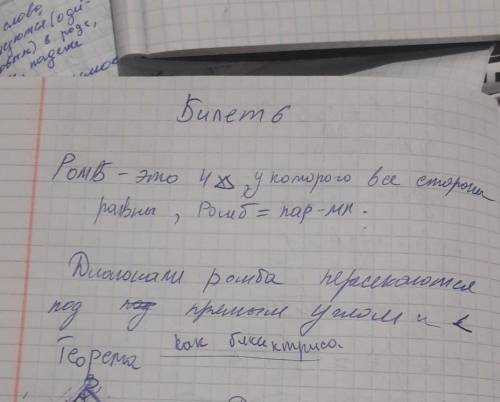 слова,
в роде,
падеже
Билет 6
Ромб - это 4, у которого все стороны
равны, Ромб = пар-мм.
Диагонали ромба пересекаются
под под прямым углом и
Теорема как биссектриса